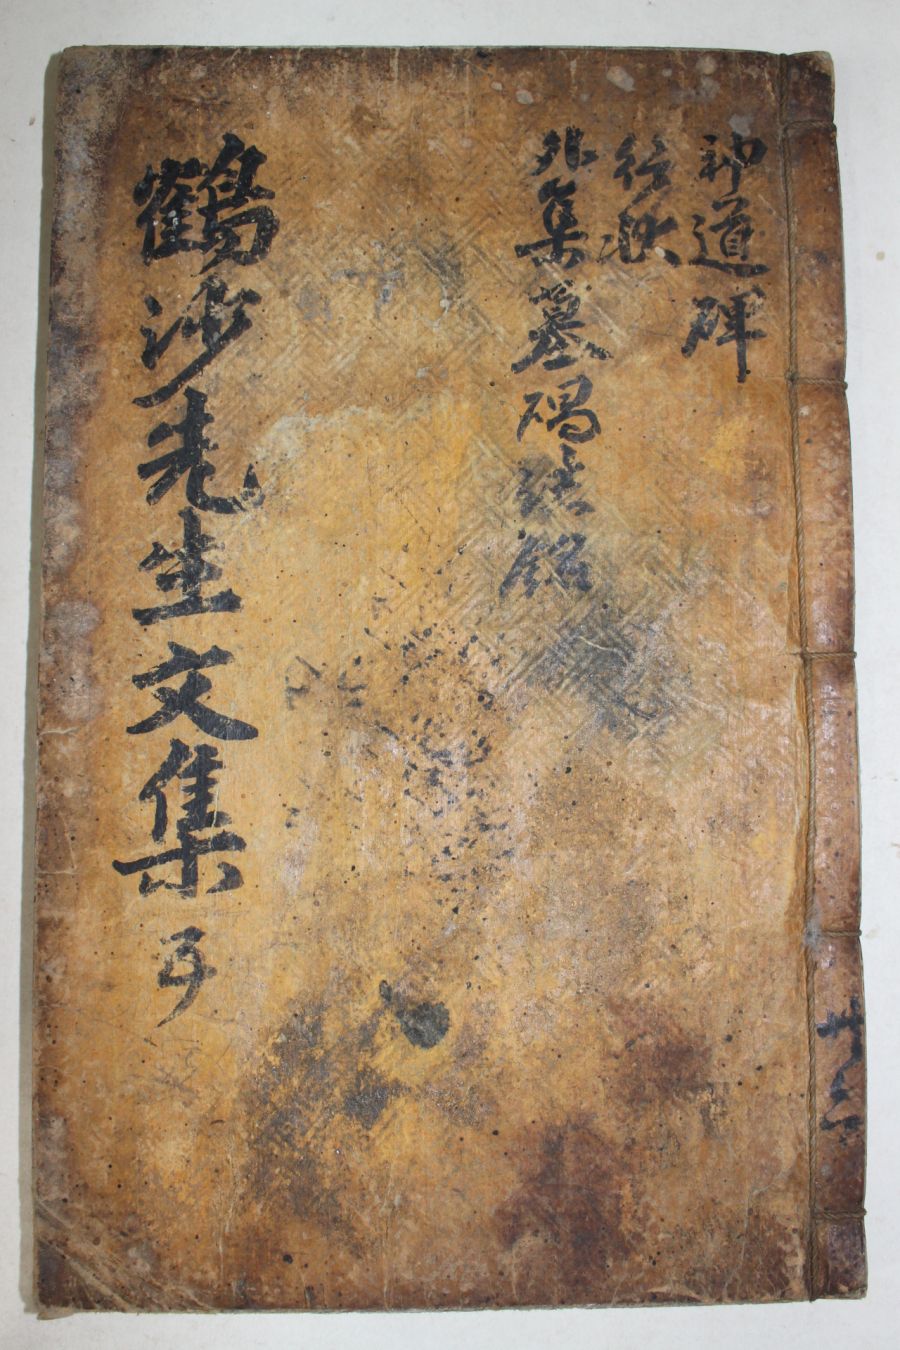 神道碑
行狀
外集墓碣墓銘
鶴沙先生文集